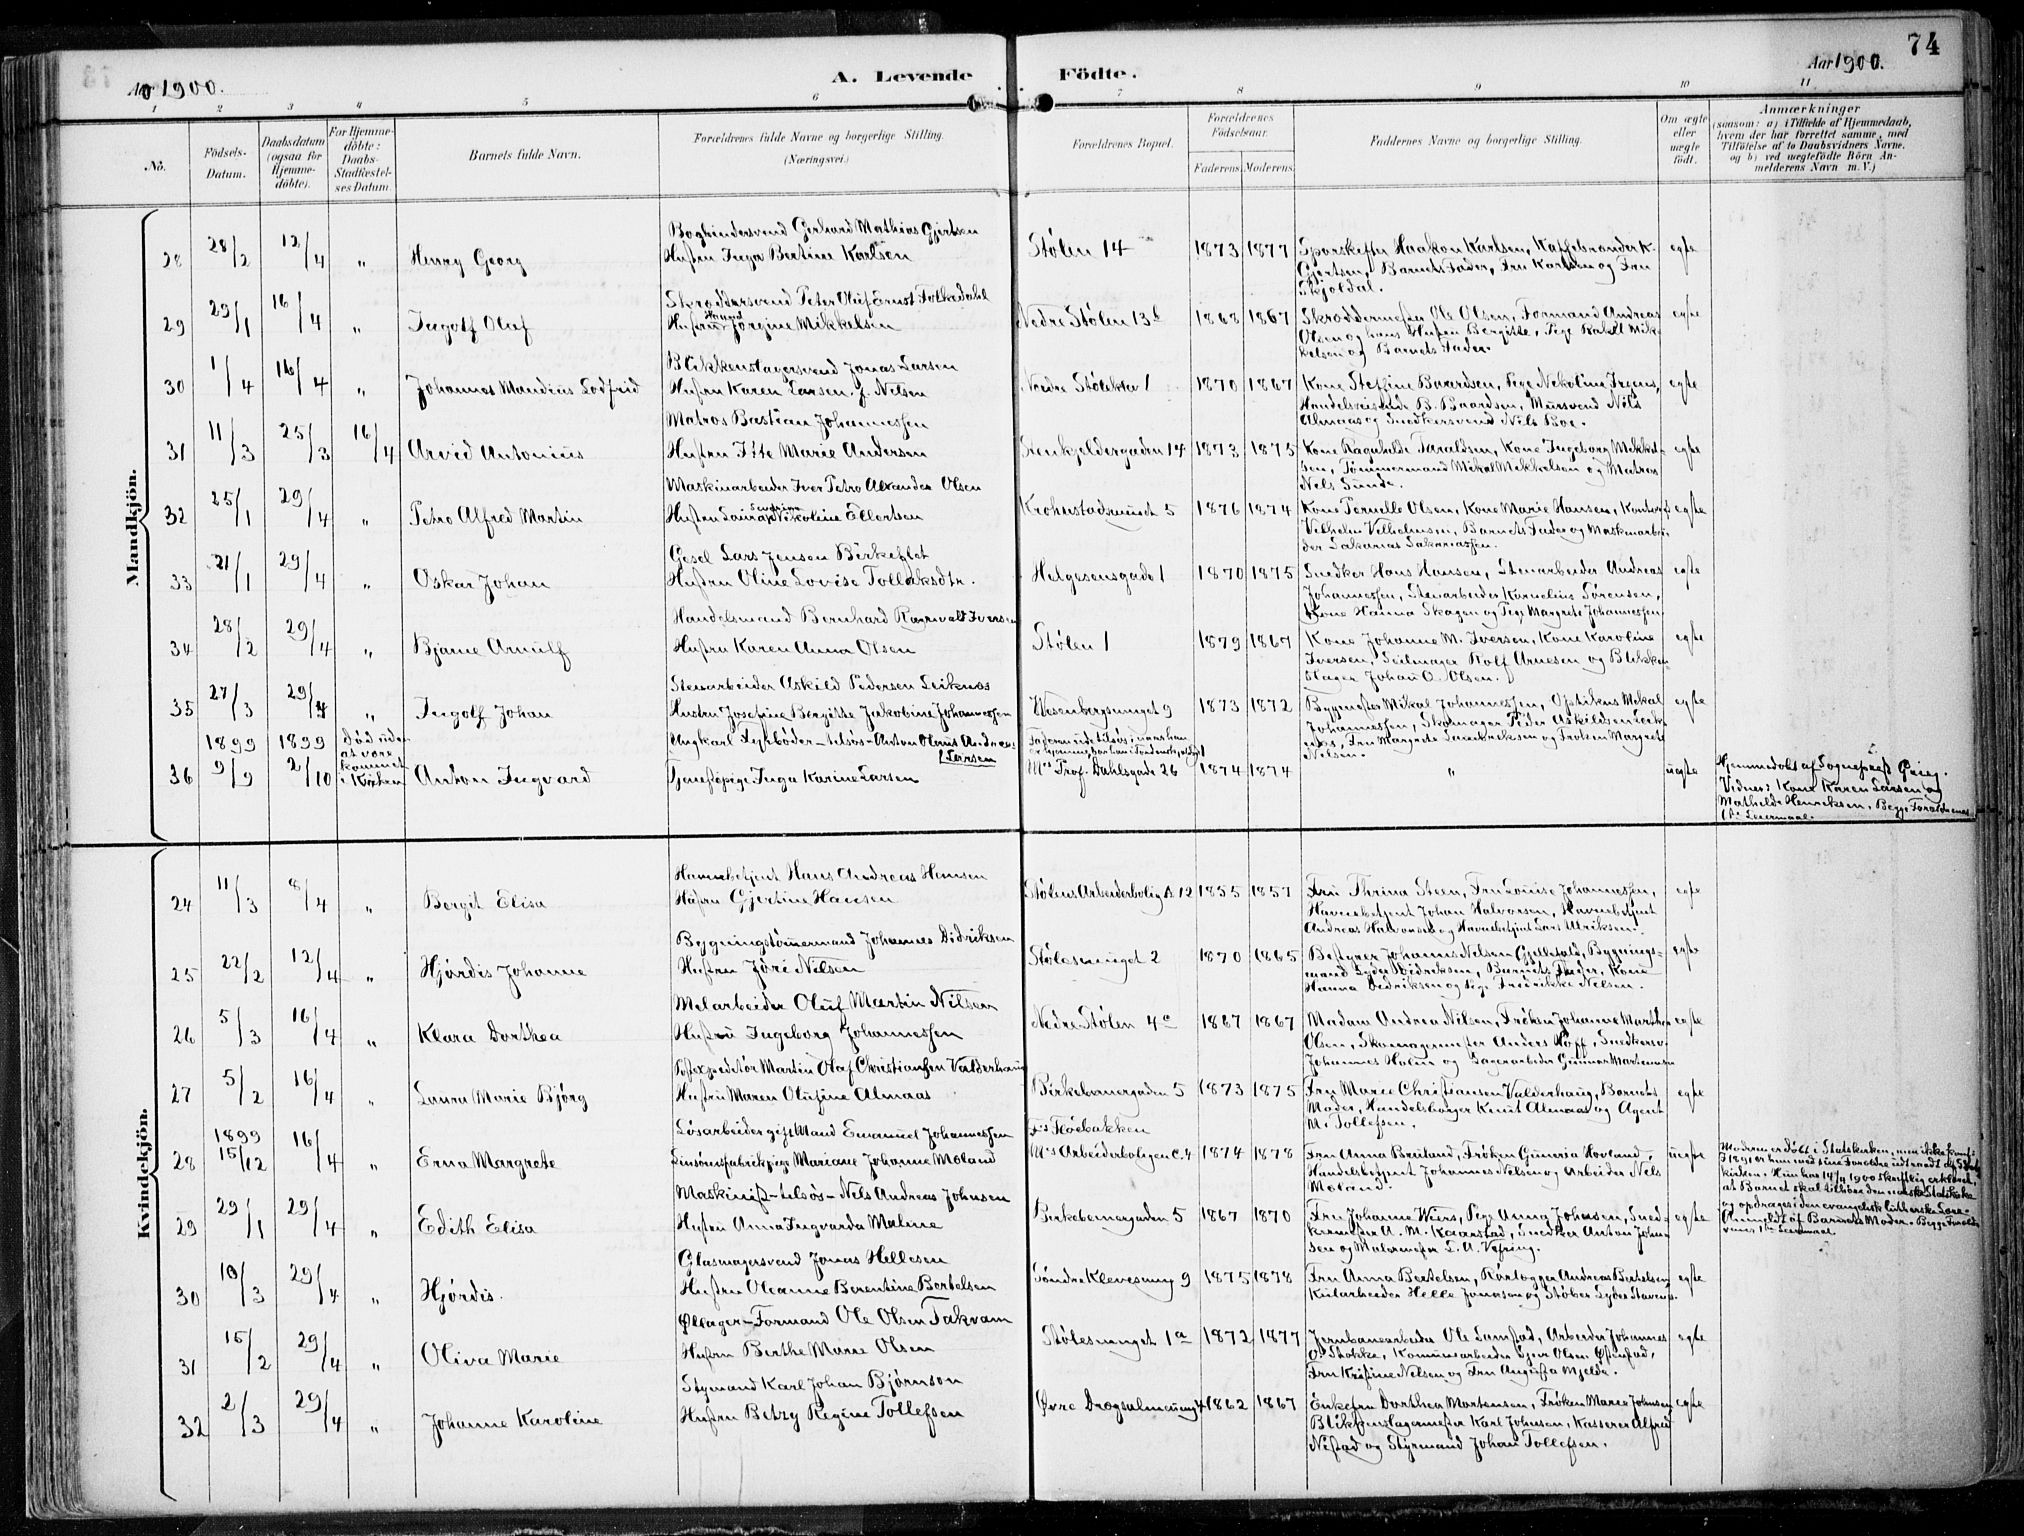 74
Aar 1900.
A. Levende Födte.
Aar 1900.
1 2 3 4 5 6 7 8 9 10 11
No.
Födsels-Datum.
Daabsdatum (ogsaa for Hjemme-döbte).
For Hjemme-döbte: Daabs-Stadfæstel-ses Datum.
Barnets fulde Navn.
Forældrenes fulde Navne og borgerlige Stilling.
(Næringsvei.)
Forældrenes Bopæl.
Forældrenes Födselsaar.
Faderens. Moderens.
Faddernes Navne og borgerlige Stilling.
Om ægte eller uægte födt.
Anmærkninger
(saasom: a) i Tilfælde af Hjemmedaab,
hvem der har forrettet samme, med
Tilföielse af to Daabsvidners Navne,
og b) ved uægtefödte Börn An-
melderens Navn m. V.)
Mandkjön.
28 28/2 12/4 " Henry Georg
Bogbindersvend Gerhard Mathias Gjertsen
Hustru Inga Bertine Karlsen
Stølen 14 1873 1877
Sporskifter Haakon Karlsen, Kaffebrænder K.
Gjertsen, Barnets Fader, Fru Karlsen og Fru
Skjoldal.
egte
29 29/1 16/4 " Ingolf Oluf
Skræddersvend Peter Oluf Ernst Folkedahl
Hustru Jørgine Mikkelsen
Nedre Stølen 13b 1868 1867
Skræddermester Ole Olsen, Formand Andreas
Olsen og hans Hustru Bergitte, Pige Rakel Mik-
kelsen og Barnets Fader.
egte
30 1/4 16/4 " Johannes Mandius Lodfrid
Blikkenslagersvend Jonas Larsen
Hustru Karen Larsen f. Nilsen
Nedre 1 1870 1867
Kone Steffine Baardsen, Pige Nikolina Irgens,
Handelsreisende B. Baardsen, Mursvend Nils
Almaas og Snedkersvend Nils Boe.
egte
31 11/3 25/3 16/4 Arvid Antonius
Matros Bastian Johannessen
Hustru Marie Andersen
Stenkjeldergaden 14 1873 1875
Kone Ragnhilde Taraldsen, Kone Ingeborg Mikkel-
sen, Tømmermand Mikal Mikkelsen og Matros
Nels Sunde.
egte
32 25/1 29/4 " Petro Alfred Martin
Maskinarbeider Iver Petro Alexander Olsen
Hustru Laura Nikoline Ellertsen
Krohnstadsmuget 5 1876 1874
Kone Pernelle Olsen, Kone Marie Hansen, Kontorist
Vilhelm Vilhelmsen, Barnets Fader og Maskinarbei-
der Sakarias Sakariassen.
egte
33 21/1 29/4 " Oskar Johan
Gesel Lars Jensen Birkeflet
Hustru Oline Lovise Tollaksdtr.
Helgesensgade 1 1870 1875
Snedker Hans Hansen, Stenarbeider Andreas
Johannessen, Stenarbeider Kornelius Sørensen,
Kone Hanna Skagen og Pige Margrete Johannessen
egte
34 28/2 29/4 " Bjarne Arnulf
Handelsmand Bernhard Iversen
Hustru Karen Anna Olsen
Stølen 1 1879 1867
Kone Johanne M. Iversen, Kone Karoline
Iversen, Seilmager Rolf Arnesen og Blikken-
slager Johan O. Olsen.
egte
35 27/3 29/4 " Ingolf Johan
Stenarbeider Askild Pedersen Leiknes
Hustru Josefine Bergitte Jakobine Johannessen
Wesenbergsmuget 9 1873 1872
Bygmester Mikal Johannessen, Optikus Mikal
Johannessen, Skomager Peder Askildsen Leik-
nes, Fru Margrete Samdriksen og Frøken Margrete
Nilsen.
egte
36 1899 9/9 1899 2/10 Død uden at være kommet i Kirken Anton Ingvard
Ungkarl Fyrbøder - tilsøs - Anton Olaus Andreas
Larsen
Tjenestepige Inga Karine Larsen
Ms Prof. Dahlsgade 26 1874 1874
" uegte
Hjemmedøbt af Sogneprest Grieg.
Vidner: Kone Karen Larsen og
Mathilde Henriksen. Begge Forældrenes
1ste Leiermaal.
Kvindekjön.
24 11/3 8/4 " Bergit Elisa
Havnebetjent Hans Andreas Hansen
Hustru Gjertine Hansen
Stølens Arbeiderbolig A 12 1855 1857
Fru Thrina Steen, Fru Louise Johannessen,
Havnebetjent Johan Halvorsen, Havnebetjent
Andreas Halvorsen og Havnebetjent Lars Ulriksen.
egte
25 22/2 12/4 " Hjørdis Johanne
Bygningstømmermand Johannes Didriksen
Hustru Jøri Nilsen
Stølesmuget 2 1870 1865
Bestyrer Johannes Nelsen Gjeldvold, Bygnings-
mand Lyder Didriksen, Barnets Fader, Kone
Hanna Didriksen og Pige Fredrikke Nelsen.
egte
26 5/3 16/4 " Klara Dorthea
Melarbeider Oluf Martin Nilsen
Hustru Ingeborg Johannessen
Nedre Stølen 4c 1867 1867
Madam Andrea Nilsen, Frøken Johanne Marthea
Olsen, Skomagermester Anders Hoff, Snedkersv.
Johannes Holm og Lagerarbeider Gunnar Martinusen
egte
27 5/2 16/4 " Laura Marie Bjørg
Postexpeditør Martin Olaf Christiansen Valderhaug
Hustru Maren Olufine Almaas
Birkebeinergaden 5 1873 1875
Fru Marie Christiansen Valderhaug, Barnets
Moder, Handelsborger Knut Almaas og Agent
M. Tollefsen.
egte
28 1899 15/12 16/4 " Erna Margrete
Løsarbeider gift Mand Emanuel Johannessen
pige Mariane Johanne Moland
Fs Fløebakken
Ms Arbeiderboligen C. 4 1874 1878
Fru Anna Breiland, Frøken Gunvia Hovland,
Handelsbetjent Johannes Nelsen og Arbeider Nels
Molvind.
uegte
Moderen er døbt i Statskirken, men ikke konf.
I 1891 er hun med sine Forældre udtraadt af Stats-
kirken. Hun har 14/4 1900 skriftlig erklæret,
at Barnet skal tilhøre den norske Statskirke
og opdrages i den evangelisk lutherske Lære.
Anmeldt af Barnets Moder. Begge Foræld-
renes 1ste Leiermaal.
29 29/1 29/4 " Edith Elisa
Maskinist - tilsøs - Nels Andreas Johnsen
Hustru Anna Ingvarda Maline
Birkebeinergaden 5 1867 1870
Fru Johanne Wiers, Pige Anna Johnsen, Sned-
kermester A. M. Kaarstad, Snedker Anton John-
sen og Malermester L. A. Vefring.
egte
30 10/3 29/4 " Hjørdis.
Glasmagersvend Jonas Hellesen
Hustru Oleanne Berentine Bertelsen
Søndre Klevesmug 9 1875 1878
Fru Anna Bertelsen, Rørlægger Andreas Bertelsen,
Kularbeider Helle Jonassen og Støber Lyder Stavens.
egte
31 15/2 29/4 " Oliva Marie
Øllager-Formand Ole Olsen Takvam
Hustru Berthe Marie Olsen
Stølesmuget 1a 1872 1877
Jernbanearbeider Ole Lamstad, Arbeider Johannes
O. Stokke, Kommunearbeider Sjur Olsen Østestad,
Fru Kristine Nelsen og Fru Augusta Mjelde.
egte
32 2/3 29/4 " Johanne Karoline
Styrmand Karl Johan Bjørnson
Hustru Betzy Regine Tollefsen
Øvre Drægsalmenning 4 1862 1867
Enkefru Dorthea Mortensen, Frøken Marie Johnsen,
Blikkenslagermester Karl Johnsen, Kasserer Alfred
Nistad og Styrmand Johan Tollefsen.
egte